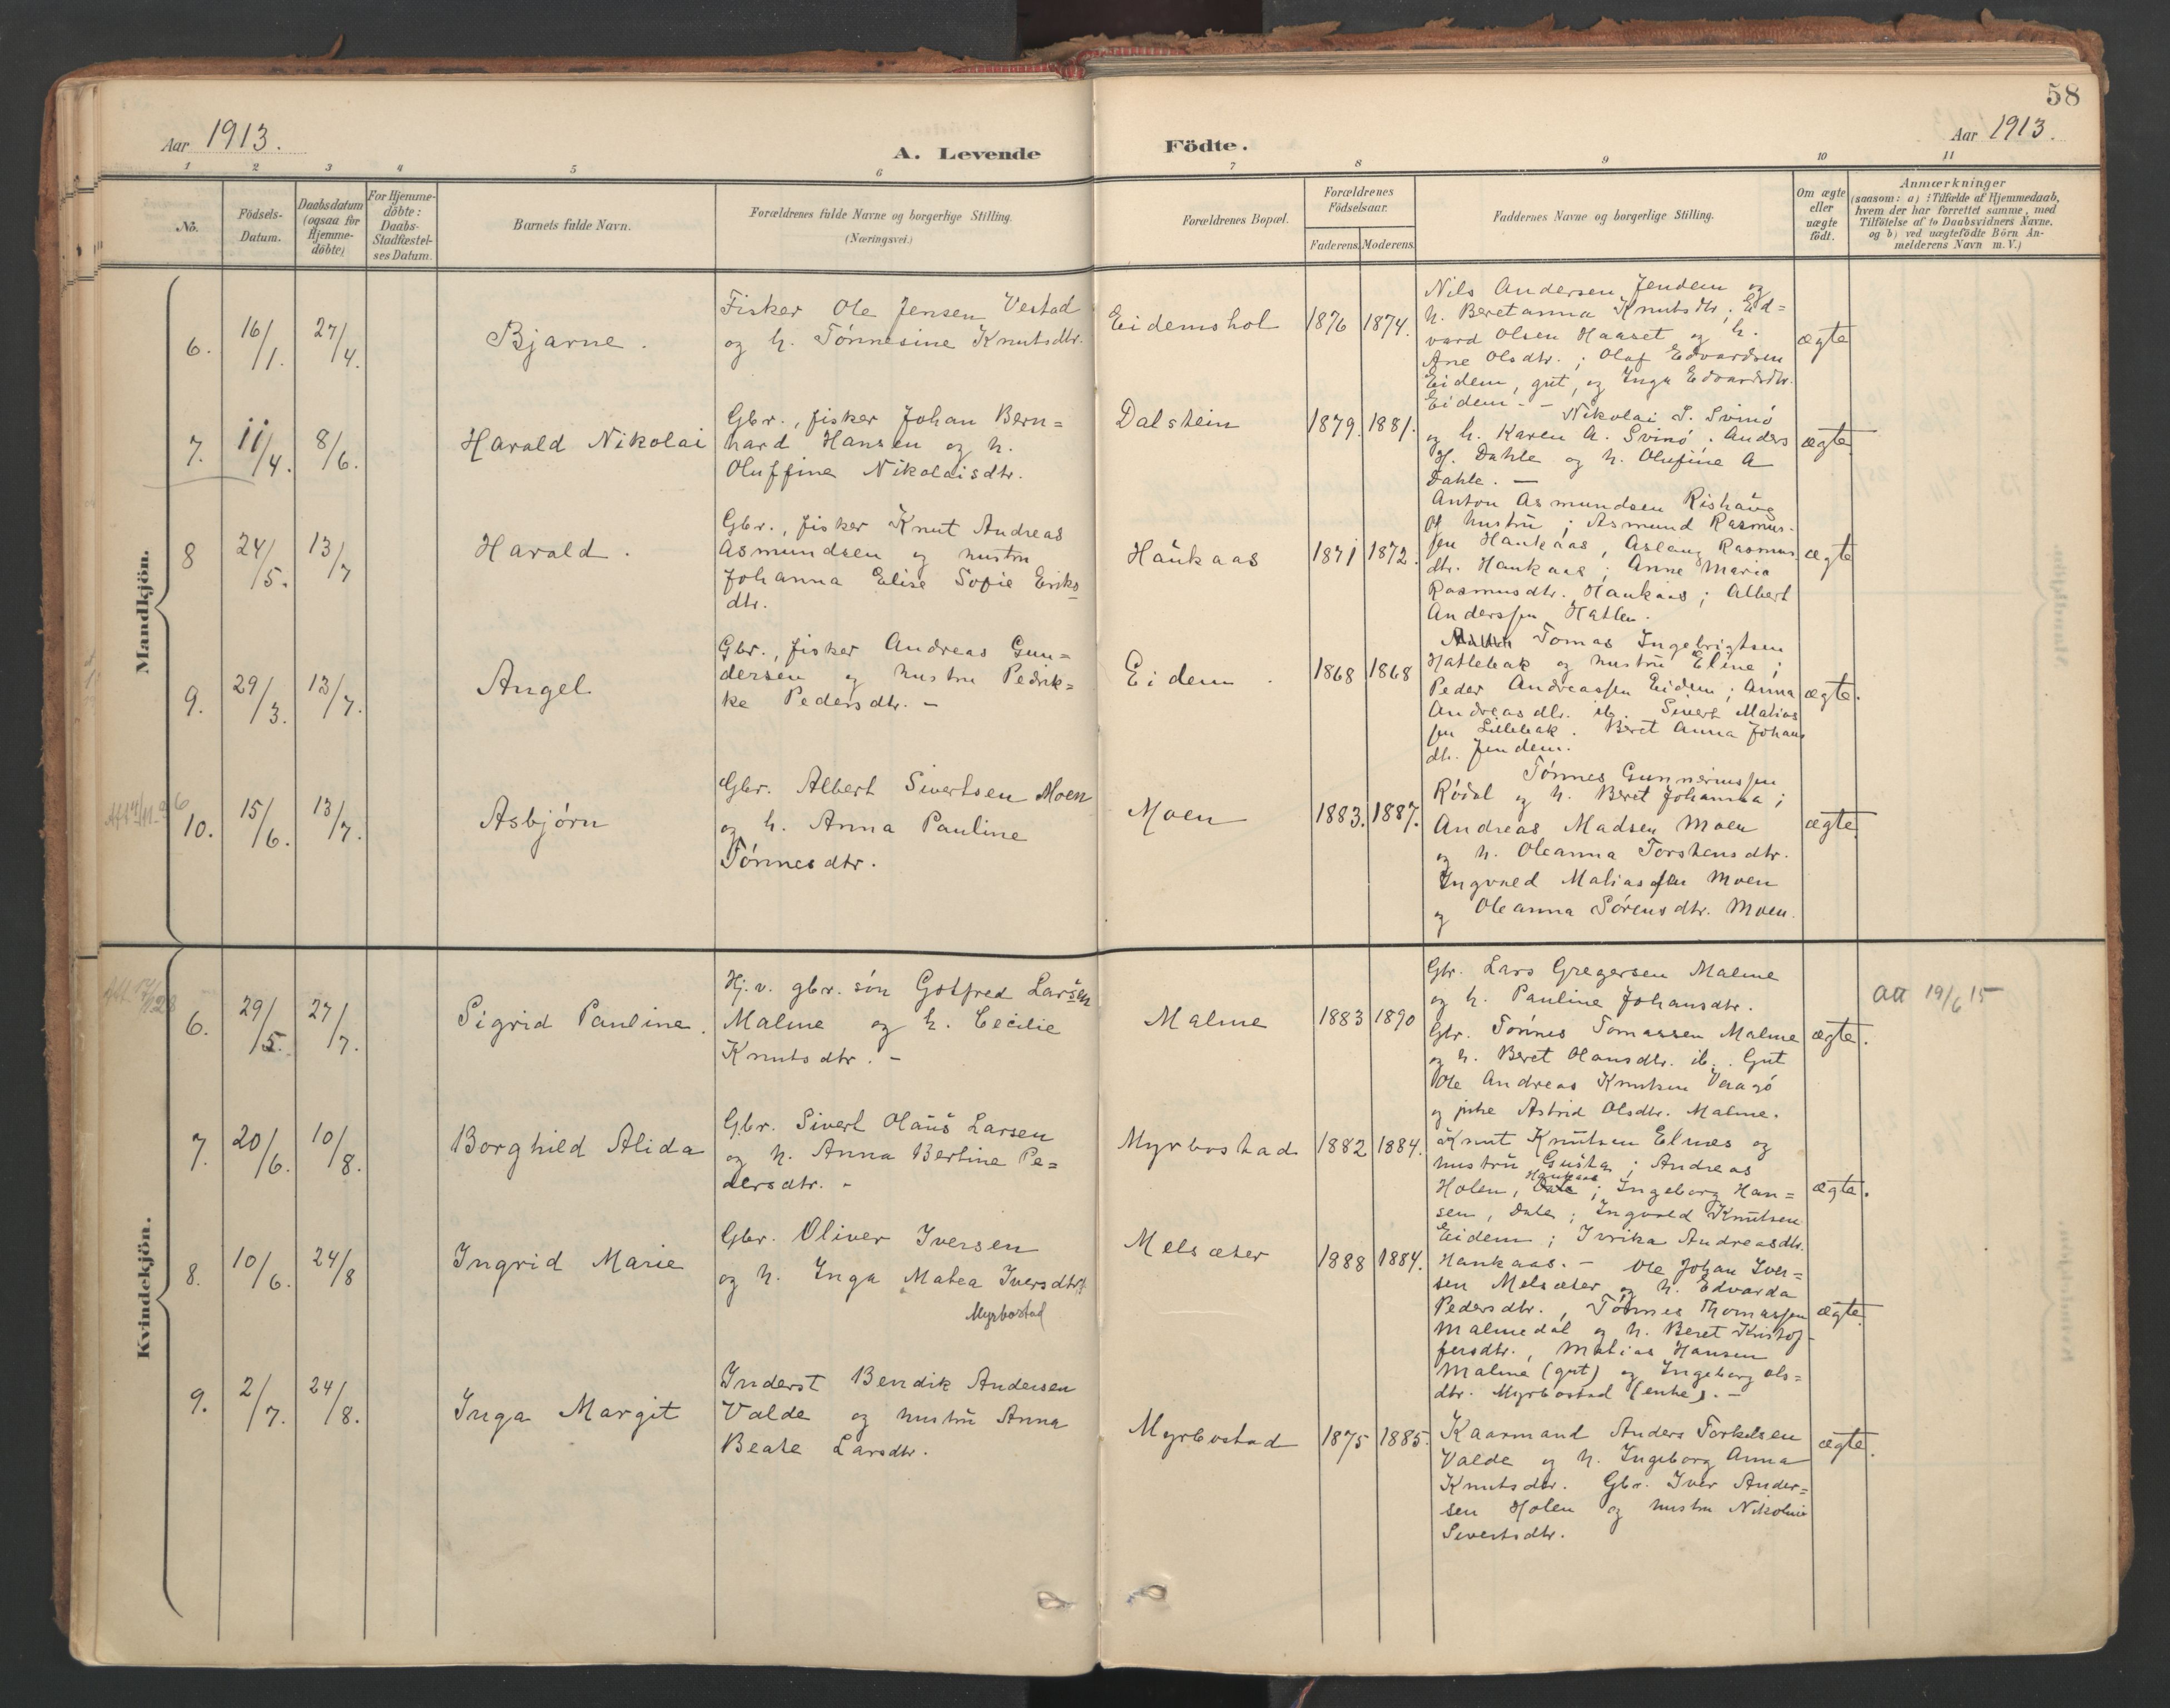 58
Aar 1913.
A. Levende
Födte.
Aar 1913.
1 2 3 4 5 6 7 8 9 10 11
No.
Födsels-
Datum.
Daabsdatum
(ogsaa for
Hjemme-
döbte)
For Hjemme-
döbte:
Daabs-
Stadfæstel-
ses Datum.
Barnets fulde Navn.
Forældrenes fulde Navne og borgerlige Stilling.
(Næringsvei.)
Forældrenes Bopæl.
Forældrenes
Födselsaar.
Faderens. Moderens.
Faddernes Navne og borgerlige Stilling.
Om ægte
eller
uægte
födt.
Anmærkninger
(saasom: a) i Tilfælde af Hjemmedaab,
hvem der har forrettet samme, med
Tilföielse af to Daabsvidners Navne.
og b) ved uægtefödte Börn An-
melderens Navn m. V.)
Mandkjön.
6. 16/1. 27/4. Bjarne.
Fisker Ole Jensen Vestad
og h. Tønnesine Knutsdtr.
Eidemshol 1876 1874.
Nils Andersen Jendem og
h. Beretanna Knutsdtr.; Ed=
vard Olsen Haaset og h.
Ane Olsdtr.; Olaf Edvardsen
Eidem, gut, og Inga Edvardsdtr.
Eidem. -
ægte
7. 11/4. 8/6. Harald Nikolai
Gbr., fisker Johan Bern=
hard Hansen og h.
Oluffine Nikolaisdtr.
Dalstein 1879. 1881.
Nikolai S. Svinø
og h. Karen A. Svinø. Anders
H. Dahle og h. Olufine A
Dahle. -
ægte
8 24/5. 13/7 Harald.
Gbr., fisker Knut Andreas
Asmundsen og hustru
Johanna Elise Sofie Eriks
dtr.
Haukaas 1871 1872.
Anton Asmundsen Rishaug
og hustru; Asmund Rasmus-
sen Haukaas, Aslaug Rasmus
dtr. Haukaas; Anne Maria
Rasmusdtr. Haukaas; Albert
Anderssen Hatlen.
ægte
9. 29/3. 13/7. Angel
Gbr., fisker Andreas Gun=
dersen og hustru Pedrik=
ke Pedersdtr. -
Eidem. 1868 1868
Tomas Ingebrigtsen
Hatlebak og hustru Eline;
Peder Andreassen Eidem; Anna
Andreasdtr. ib. Sivert Matias
sen Lillebak. Beret Anna Johans
dtr. Jendem.
ægte.
10. 15/6. 13/7. Asbjørn
Gbr. Albert Sivertsen Moen
og h. Anna Pauline
Tønnesdtr.
Moen 1883. 1887.
Tønnes Gunneriussen
Rødal og h. Beret Johanna;
Andreas Madsen Moen
og h. Oleanna Torstensdtr.
Ingvald Matiassen Moen
og Oleanna Sørensdtr. Moen.
ægte
Kvindekjön.
6. 29/5. 27/7. Sigrid Pauline.
Hj. v. gbr. søn Gotfred Larsen
Malme og h. Cecilie
Knutsdtr. -
Malme 1883 1890
Gbr. Lars Gregersen Malme
og h. Pauline Johansdtr.
Gbr. Tønnes Tomassen Malme
og h. Beret Hansdtr. ib. Gut
Ole Andreas Knutsen Vaagø
og pike Astrid Olsdtr. Malme.
ægte.
att 19/6 15
7. 20/6. 10/8. Borghild Alida
Gbr. Sivert Olaus Larsen
og h. Anna Bertine Pe=
dersdtr. -
Myrbostad 1882 1884.
Knut Knutsen Elnes og
hustru Gusta; Andreas
Holen, Haukaas; Ingeborg Han=
sen, Dale; Ingvald Knutsen
Eidem; Ivrika Andreasdtr.
Haukaas. -
ægte.
8. 10/6. 24/8 Ingrid Marie
Gbr. Oliver Iversen
og h. Inga Matea Iversdtr.
Myrbostad
Melsæter 1888 1884.
Ole Johan Iver=
sen Melsæter og h. Edvarda
Pedersdtr., Tønnes Thomassen
Malmedal og h. Beret Kristof-
fersdtr., Matias Hansen
Malme (gut) og Ingeborg Ols=
dtr. Myrbostad (enke). -
ægte.
9. 2/7. 24/8. Inga Margit
Inderst Bendik Andersen
Valde og hustru Anna
Beate Larsdtr.
Myrbostad 1875 1885.
Kaarmand Anders Torkelsen
Valde og h. Ingeborg Anna
Knutsdtr. Gbr. Iver Ander=
sen Holen og hustru Nikoline
Sivertsdtr.
ægte.